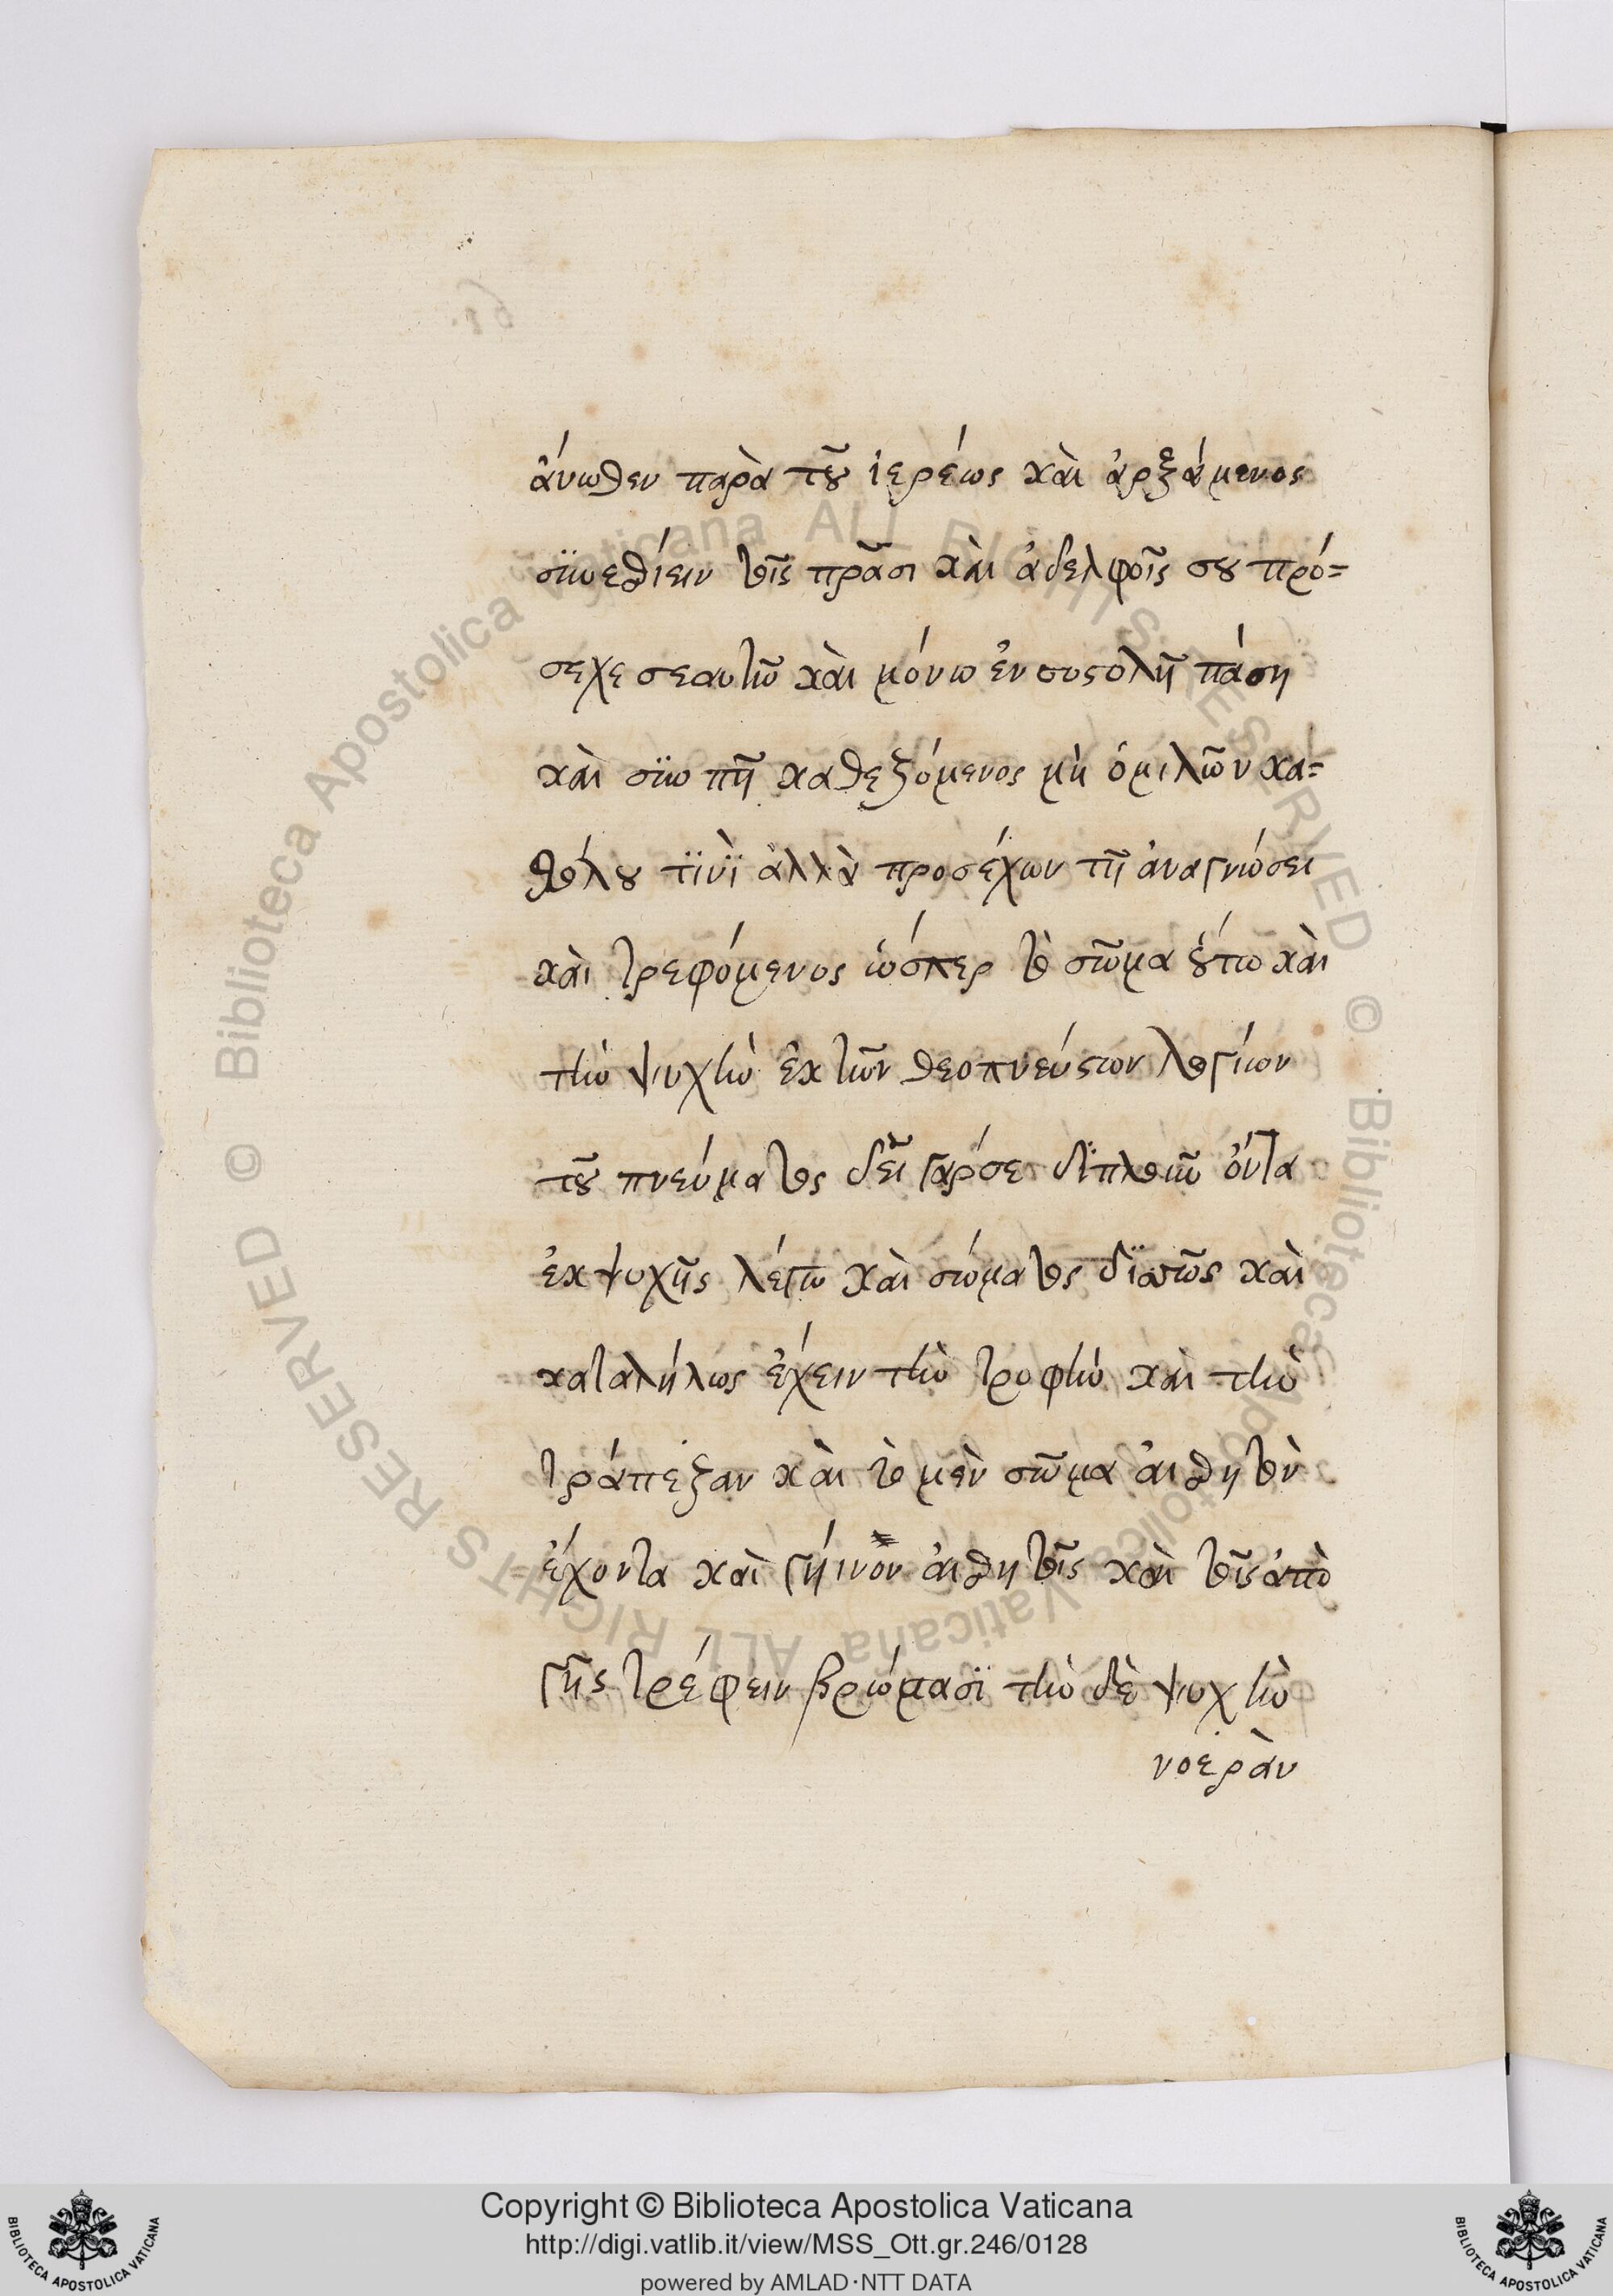 ἄνωθεν παρὰ τοῦ ἱερέως καὶ ἀρξάμενος
συνεσθίειν τοῖς πρᾶσι καὶ ἀδελφοῖς σου πρό=
σεχε σεαυτῶ καὶ μόνω ἐν συστολῆ πάση
καὶ σιωπῆ καθεζόμενος μὴ ὁμιλῶν κα=
θόλου τϊνὶ ἀλλὰ προσέχων τῆ ἀναγνώσει
καὶ τρεφόμενος ὥσπερ τὸ σῶμα οὕτω καὶ
τὴν ψυχὴν ἐκ τῶν θεοπνεύστων λογίων
τοῦ πνεύματος δεῖ γάρ σε διπλοῦν ὄντα
ἐκ ψυχῆς λέγω καὶ σώματος διττῶς καὶ
καταλήλως ἔχειν τὴν τροφὴν καὶ τὴν
τράπεζαν καὶ τὸ μὲν σῶμα αἰσθητὸν
ἔχοντα καὶ γήινον αἰσθητοῖς καὶ τοῖς ἀπὸ
γῆς τρέφειν βρώμασϊ τὴν δὲ ψυχὴν
νοερὰν
Copyright © Biblioteca Apostolica Vaticana
http://digi.vatlib.it/view/MSS_Ott.gr.246/0128
powered by AMLAD·NTT DATA
© Biblioteca Apostolica Vaticana ALL RIGHTS RESERVED
© Biblioteca Apostolica Vaticana ALL RIGHTS RESERVED
BIBLIOTECA APOSTOLICA VATICANA
BIBLIOTECA APOSTOLICA VATICANA